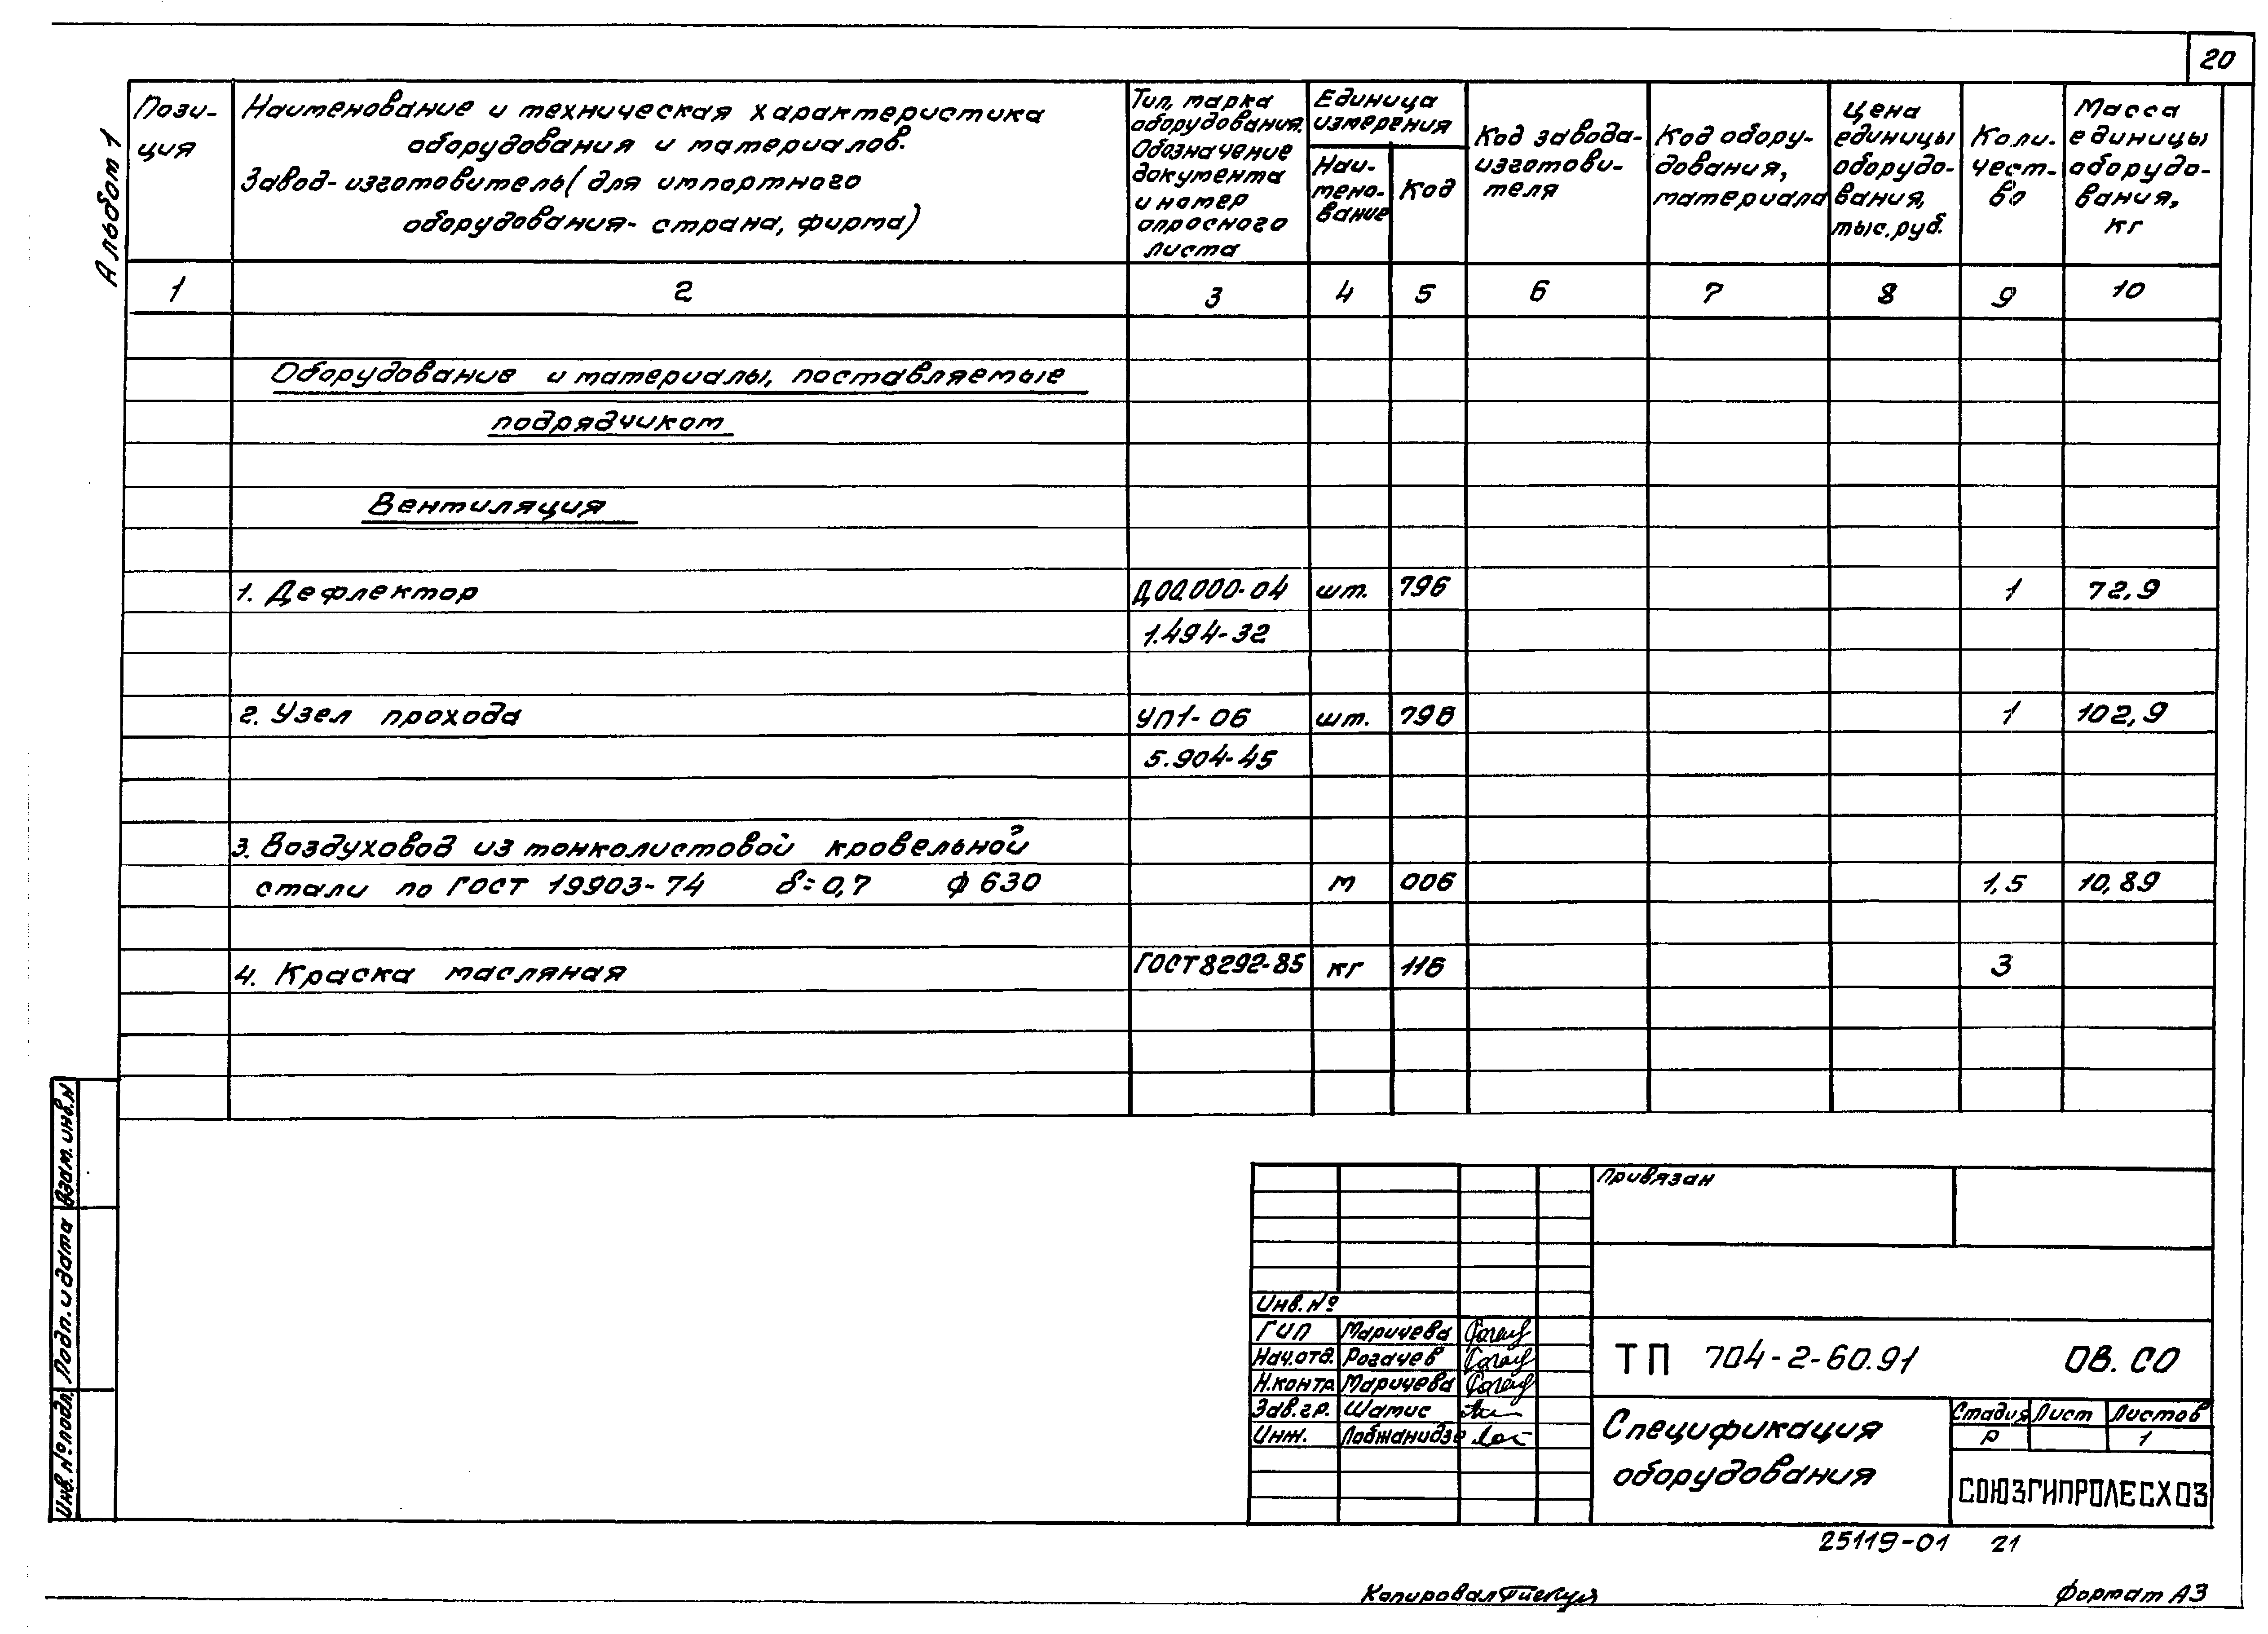 20
Альбом 1
Пози-
ция
Наименование и техническая характеристика
оборудования и материалов.
Завод-изготовитель (для импортного
оборудования- страна, фирма)
Тип, марка
оборудования.
Обозначение
документа
и номер
опросного
листа
Единица
измерения
Наи-
мено-
вание
Код
Код завода-
изготови-
теля
Код обору-
дования,
материала
Цена
единицы
оборудо-
вания,
тыс. руб.
Коли-
чест-
во
Масса
единицы
оборудо-
вания,
кг
1 2 3 4 5 6 7 8 9 10
Оборудование и материалы, поставляемые
подрядчиком
Вентиляция
1. Дефлектор Д00.000-04 шт. 796 1 72,9
1.494-32
2. Узел прохода УП1-06 шт. 796 1 102,9
5.904-45
3. Воздуховод из тонколистовой кровельной
стали по ГОСТ 19903-74 δ=0,7 ф 630 м 006 1,5 10,89
4. Краска масляная ГОСТ 8292-85 кг 116 3
Взам. инв. N
Подп. и дата
Инв. № подл.
Привязан
Инв. №
ГИП Маричева
Нач. отд. Рогачев
Н. контр. Маричева
Зав. гр. Шамис
Инж. Лобжанидзе
ТП 704-2-60.91 ОВ. СО
Спецификация
оборудования
Стадия Лист Листов
Р 1
СОЮЗГИПРОЛЕСХОЗ
25119-01 21
Копировал
Формат А3